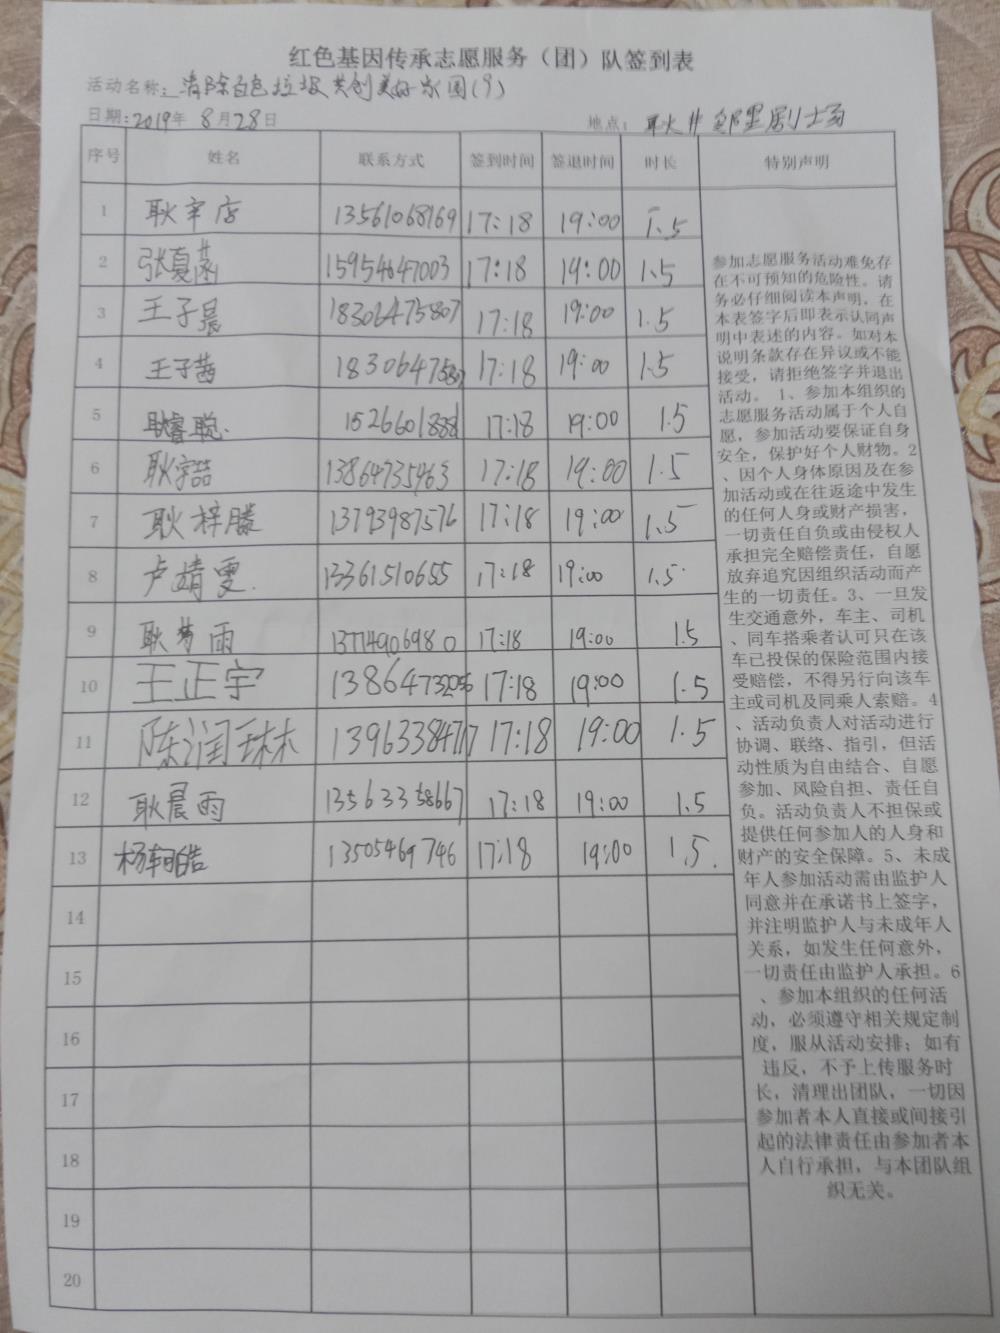 红色基因传承志愿服务（团）队签到表
活动名称：清除白色垃圾共创美好家园(9)
日期：2019年 8月28日 地点：耿井邻里剧场
序号 姓名 联系方式 签到时间 签退时间 时长 特别声明
1 耿宇 13561068769 17:18 19:00 1.5
2 张夏菡 15954647003 17:18 19:00 1.5
3 王子晨 18306475807 17:18 19:00 1.5
4 王子茜 18306475807 17:18 19:00 1.5
5 耿睿聪 17:18 19:00 1.5
6 耿宇喆 13864735463 17:18 19:00 1.5
7 耿梓滕 13793987576 17:18 19:00 1.5
8 卢婧雯 13361510655 17:18 19:00 1.5
9 耿梦雨 13714906980 17:18 19:00 1.5
10 王正宇 17:18 19:00 1.5
11 陈润琳 17:18 19:00 1.5
12 耿晨雨 13563358667 17:18 19:00 1.5
13 杨轲皓 13505469746 17:18 19:00 1.5
14
15
16
17
18
19
20
参加志愿服务活动难免存
在不可预知的危险性。请
务必仔细阅读本声明，在
本表签字后即表示认同声
明中表述的内容。如对本
说明条款存在异议或不能
接受，请拒绝签字并退出
活动。 1、参加本组织的
志愿服务活动属于个人自
愿，参加活动要保证自身
安全，保护好个人财物。2
、因个人身体原因及在参
加活动或在往返途中发生
的任何人身或财产损害，
一切责任自负或由侵权人
承担完全赔偿责任，自愿
放弃追究因组织活动而产
生的一切责任。3、一旦发
生交通意外，车主、司机
、同车搭乘者认可只在该
车已投保的保险范围内接
受赔偿，不得另行向该车
主或司机及同乘人索赔。4
、活动负责人对活动进行
协调、联络、指引，但活
动性质为自由结合、自愿
参加、风险自担、责任自
负。活动负责人不担保或
提供任何参加人的人身和
财产的安全保障。5、未成
年人参加活动需由监护人
同意并在承诺书上签字，
并注明监护人与未成年人
关系，如发生任何意外，
一切责任由监护人承担。6
、参加本组织的任何活
动，必须遵守相关规定制
度，服从活动安排；如有
违反，不予上传服务时
长，清理出团队，一切因
参加者本人直接或间接引
起的法律责任由参加者本
人自行承担，与本团队组
织无关。